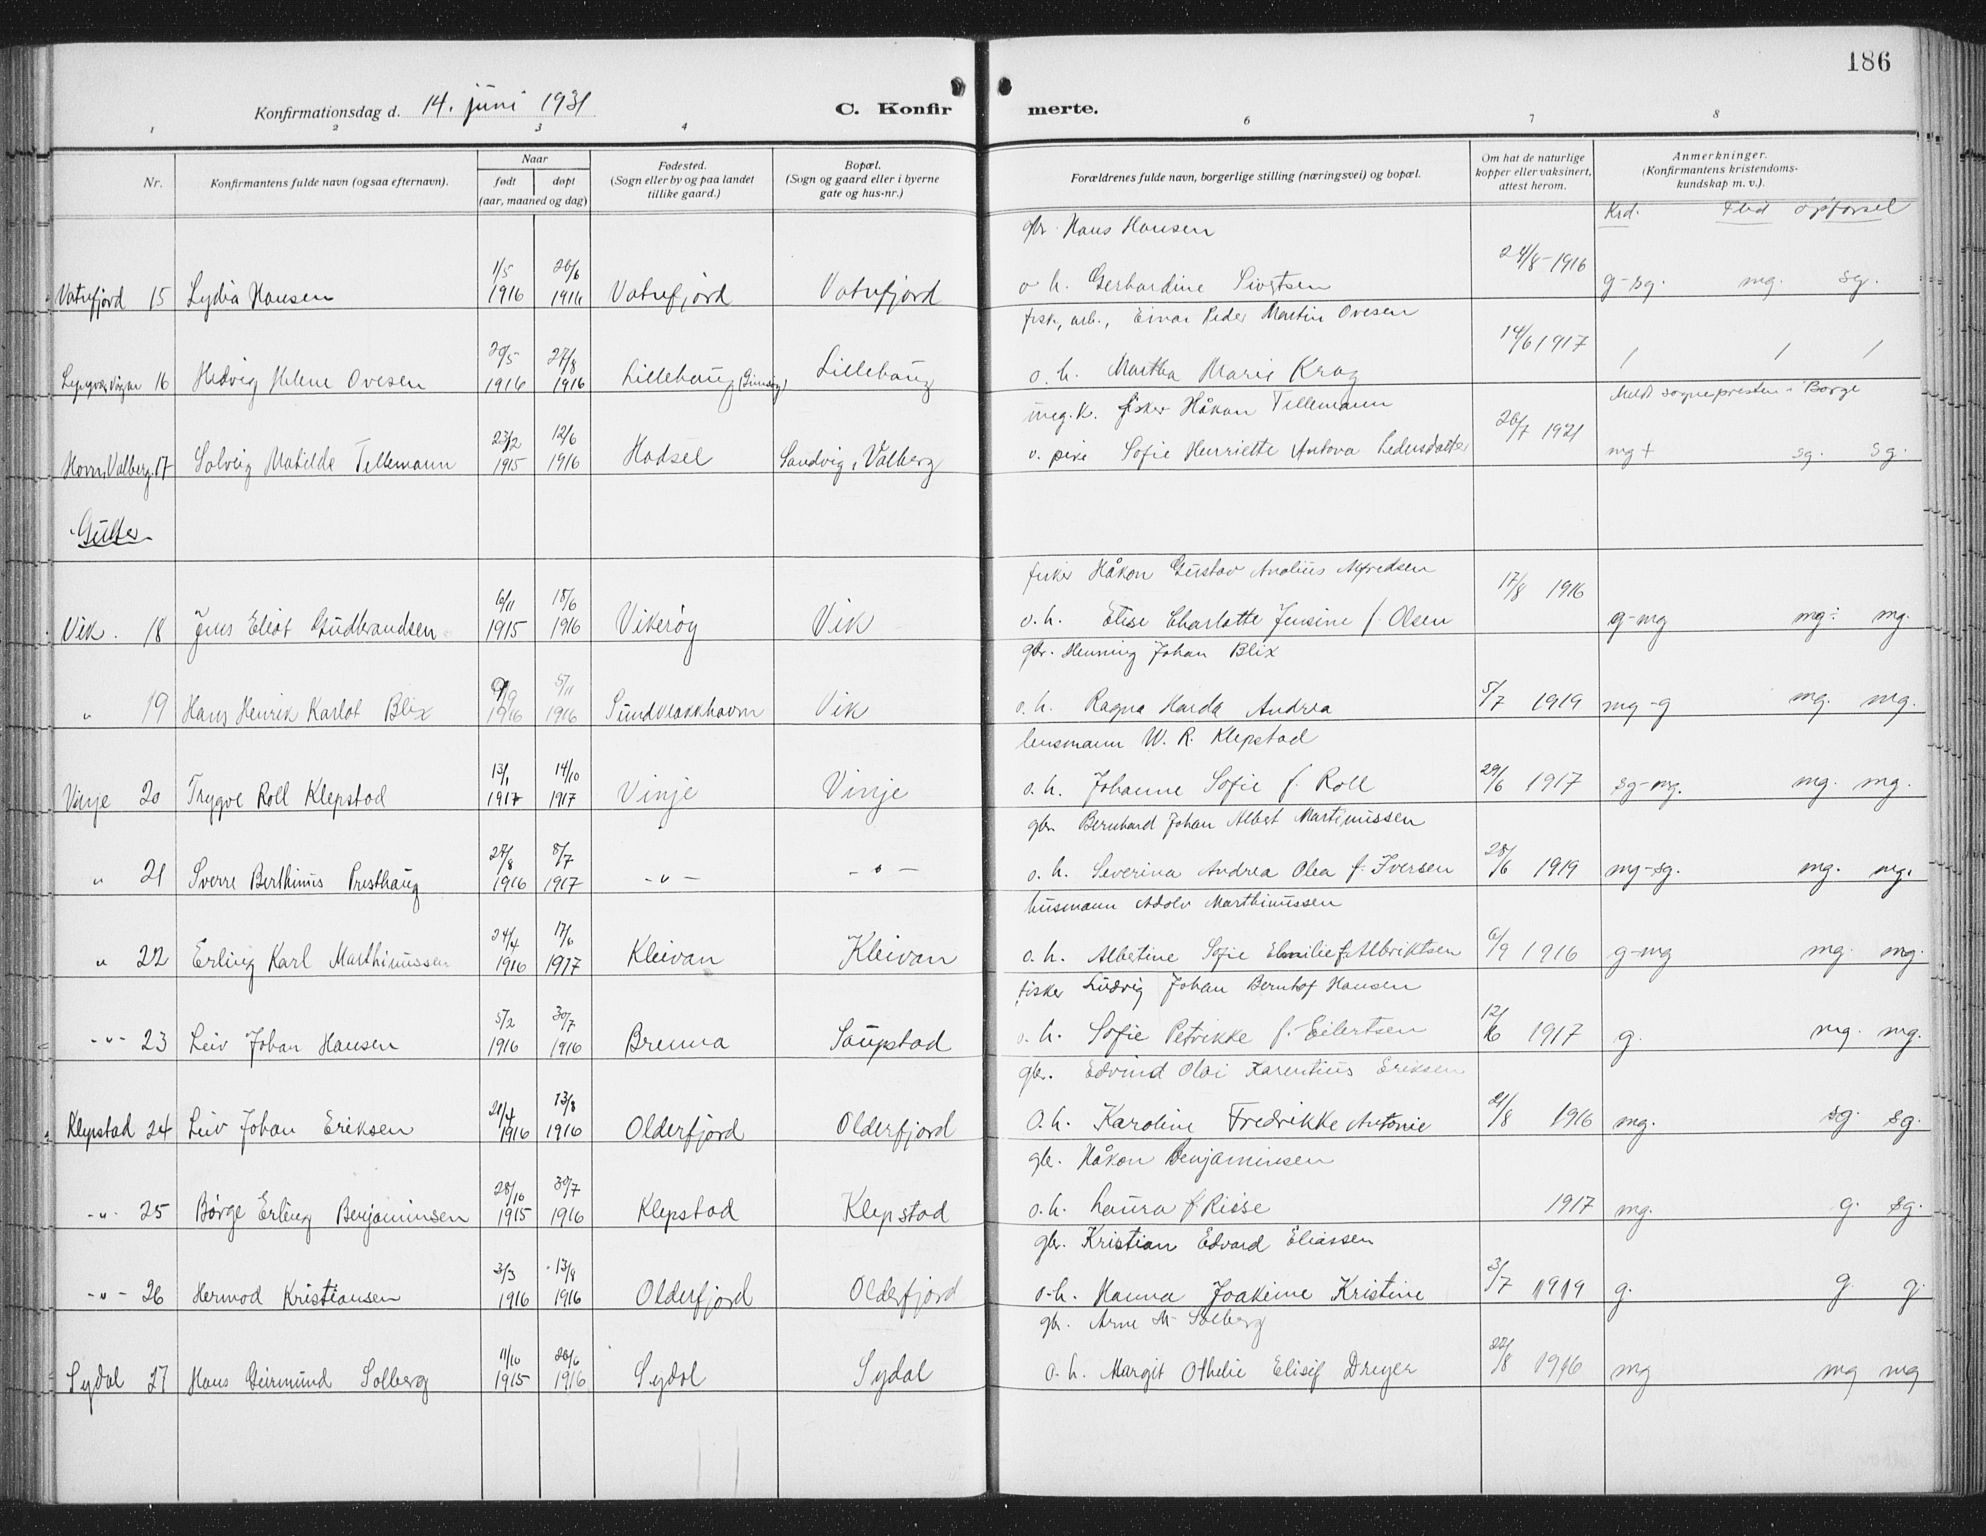 186
Konfirmationsdag d. 14. juni 1931
C. Konfirmerte.
1 2 3 4 6 7 8
Nr.
Konfirmantens fulde navn (ogsaa efternavn).
Naar
født
døpt
(aar, maaned og dag)
Fødested.
(Sogn eller by og paa landet
tillike gaard.)
Bopæl.
(Sogn og gaard eller i byerne
gate og hus-nr.)
Forældrenes fulde navn, borgerlige stilling (næringsvei) og bopæl.
Om hat de naturlige
kopper eller vaksinert,
attest herom.
Anmerkninger.
(Konfirmantens kristendoms-
kundskap m. v.).
Krd. Flid opførsel
gbr. Hans Hansen
1/5 20/6 24/8-1916
Vatnfjord 15 Lydia Hansen 1916 1916 Vatnfjord Vatnfjord o. h. Gerhardine Sivertsen g-sg. mg. sg.
fisk, arb., Einar Peder Martin Ovesen
20/5 27/8 14/6 1917
16 Hedvig Helene Ovesen 1916 1916 Lillehaug (Gimsøy) Lillehaug o. h. Martha Marie Krog / / /
Meldt sognepresten i Borge
ug. k. fisker Håkon Tellemann
23/2 12/6 20/7 1921
Homs, Valberg 17 Solveig Matilde Tellemann 1915 1916 Hadsel Sandvig, Valberg o. pike Sofie Henriette Antona Pedersdatter mg + sg. sg.
Gutter
fisker Håkon Gustav Analius Alfredsen
6/11 18/6 17/8 1916
Vik. 18 Jens Eliot Gudbrandsen 1915 1916 Vikerøy Vik o. h. Elise Charlotte Jensine f. Olsen g-mg mg÷ mg.
gbr. Henning Johan Blix
9/9 5/11
" 19 Hans Henrik Karlot Blix 1916 1916 Sundklakkhavn Vik o. h. Ragna Harda Andrea 5/7 1919 mg-g mg. mg.
lensmann W. R. Klepstad
13/1 14/10
Vinje 20 Trygve Roll Klepstad 1917 1917 Vinje Vinje o. h. Johanne Sofie f. Roll 29/6 1917 sg-mg. mg. mg.
gbr. Bernhard Johan Albert Martinussen
27/8 8/7
" 21 Sverre Berthinus Presthaug 1916 1917 -"- -"- o. h. Severina Andrea Olea f. Iversen 28/6 1919 mg-sg. mg. mg.
husmann Adolv Marthinussen
24/4 17/6
" 22 Erling Karl Marthinussen 1916 1917 Kleivan Kleivan o. h. Albertine Sofie Emilie f. Albriktsen 6/9 1916 g-mg mg. mg.
fisker Ludvig Johan Bernhof Hansen
5/2 30/7
-"- 23 Leiv Johan Hansen 1916 1916 Brenna Saupstad o. h. Sofie Petrikke f. Eilertsen 12/6 1917 g. mg. mg.
gbr. Edvind Olai Karentius Eriksen
21/4 13/8
Klepstad 24 Leiv Johan Eriksen 1916 1916 Olderfjord Olderfjord o. h. Karoline Fredrikke Antonie 21/8 1916 mg. sg. sg.
gbr. Håkon Benjaminsen
28/10 30/7
-"- 25 Børge Erling Benjaminsen 1915 1916 Klepstad Klepstad o. h. Laura f. Riise 1917 mg. g. sg.
gbr. Kristian Edvard Eliassen
3/3 13/8
-"- 26 Hermod Kristiansen 1916 1916 Olderfjord Olderfjord o. h. Hanna Joakime Kristine 3/7 1919 g. g. g.
gbr. Arne M. Solberg
11/10 20/6
Sydal 27 Hans Geirmund Solberg 1915 1916 Sydal Sydal o. h. Margit Othelie Elisif Dreyer 22/8 1916 mg mg mg